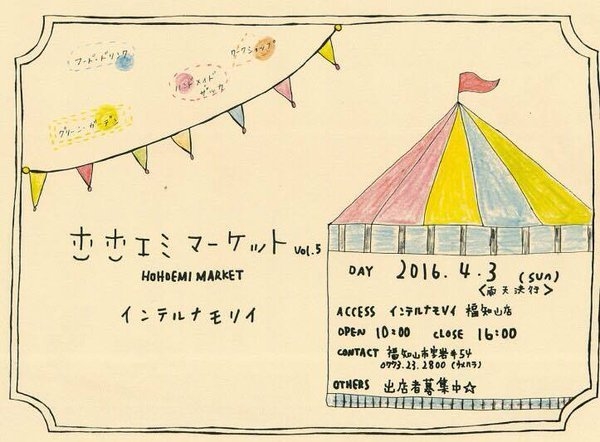 フード・ドリンク
ワークショップ
ハンドメイド
ザッカ
グリーン・ガーデン
ホホエミ マーケット vol.5
HOHOEMI MARKET
インテルナモリイ
DAY 2016.4.3 (sun)
<雨天決行>
ACCESS インテルナモリイ 福知山店
OPEN 10:00 CLOSE 16:00
CONTACT 福知山市字岩井54
0773.23.2800
OTHERS 出店者募集中☆